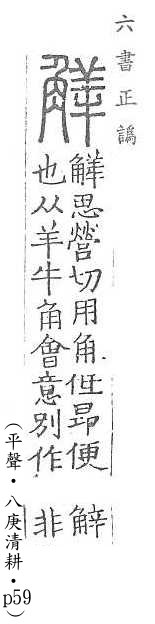 六書正譌
觲
觲思營切用角低昂便
也从羊牛角會意別作
非
（平聲・八庚清耕・p59）